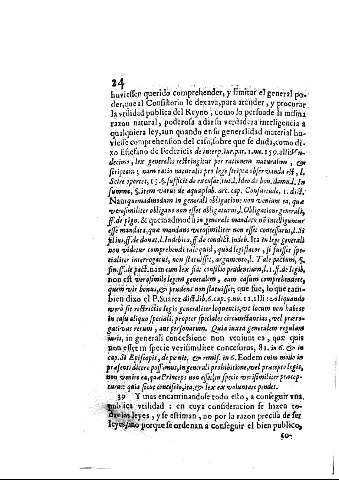 24
huviessen querido comprehender, y limitar el general po-
der, que al Consistorio le dexava, para atender, y procurar
la vtilidad publica del Reyno, como lo persuade la misma
razon natural, poderosa a dar su verdadera inteligencia a
qualquiera ley, aun quando en su generalidad material hu-
viesse comprehension del caso, sobre que se duda, como di-
xo Estefano de Federicis de interp. iur. par. 1. nu.
decimo, lex generalis restringitur per rationem naturalem, &
scriptam; nam ratio naturalis pro lege scripta observanda est, l.
Scire oportet, 13. §. sufficit de excusat. tut. l. Ideo de bon. damn. l. In
summa, §. item varus de aqua pluv. arc. cap. Consuetudo, 1. dist.
Nam quemadmodum in generali obligatione non veniunt ea, quæ
verosimiliter obligaro non esset obligaturus, l. Obligatione generali,
ff. de pign. & quemadmodũ in generali mandato nō intelligitur
esse mandata, quæ mandans verosimiliter non esset concessurus, l. Si
filius, ff. de donat. l. Indebitū, ff. de condict. indeb. Ita in lege generali
non videtur comprehendi talis quid, quod legislator, si fuisset spe-
cialiter interrogatus, non statuisset, argumento, l. Tale pactum, §.
fin. ff. de pact. nam cum lex sit consilio prudentium, l. 1. ff. de legib.
non est verosimile legem generalem, eam casum comprehendere,
quem vir bonus, & prudens non statuisset; que fue, lo que tam-
bien dixo el P. Suarez dict. lib. 6. cap. 5. nu. 11. illi: aliquando
verò fit restrictio legis generaliter loquentis, vt locum non habeat
in casu aliquo speciali, propter speciales circunstantias, vel præro-
gativas rerum, aut personarum. Quia iuxta generalem regulam
iuris, in generali concessione non veniunt ea, quæ quis
non esset in specie verisimiliter concessurus, l. in 6. & in
cap. Si Episcopis, de pœnit, & remis. in 6. Eodem enim modo in
præsenti dicere possumus, in generali prohibitione, vel præcepto legis,
non venire ea, quæ Princeps non esset in specie verisimiliter præcep-
turus: quia sicut concessio, ita, & lex ex voluntate pendet.
39 Y mas encaminandose todo esto, a conseguir vna
publica vtilidad; en cuya consideracion se hazen to-
das las leyes, y se estiman, no por la razon precisa de ser
leyes, sino porque se ordenan a conseguir el bien publico,